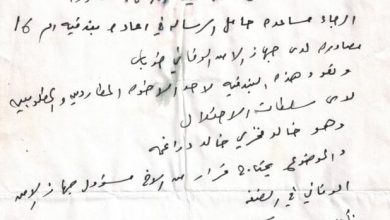 الرجاء مساعدة حامل الرسالة في اعادة بندقيه ام 16
مصادره لدى جهاز الامن الوقائي
وتعود هذه البندقيه لاحد الاخوه المطاردين والمطلوبين
لدى سلطات الاحتلال
وهو خالد فخري خالد دراغمه
والموضوع يحتاج قرار من الاخ مسؤول جهاز الامن
الوقائي في الضفة